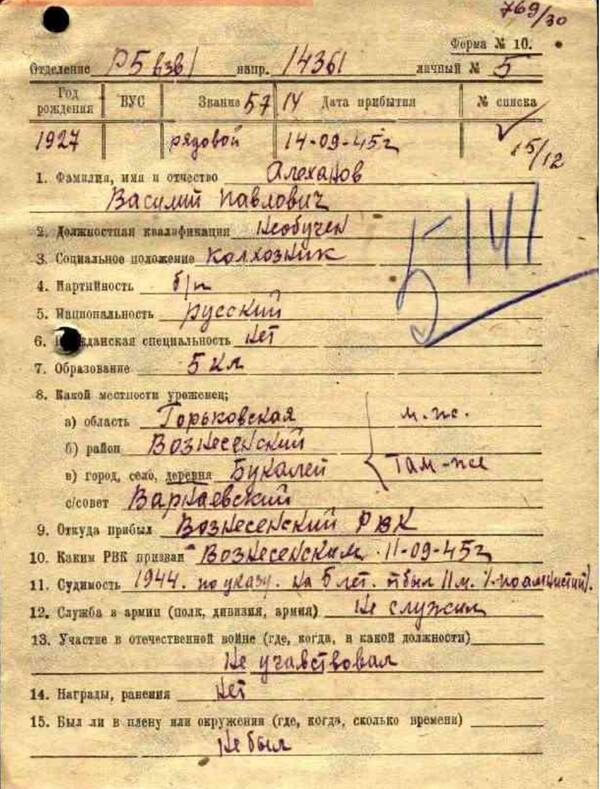 769/30
Форма № 10.
Отделение Р5 взв1 напр. 14361 личный № 5
Год рождения ВУС Звание 57 14 Дата прибытия № списка
1927 рядовой 14-09-45г 15/12
1. Фамилия, имя и отчество Алеханов
Василий Павлович
2. Должностная квалификация необучен
3. Социальное положение колхозник
5-141
4. Партийность б/п
5. Национальность русский
6. жданская специальность нет
7. Образование 5 кл
8. Какой местности уроженец;
а) область Горьковская м.-ж.
б) район Вознесенский
в) город, село, деревня Букалей там-же
с/совет Варнаевский
9. Откуда прибыл Вознесенский РВК
10. Каким РВК призван Вознесенским 11-09-45г
11. Судимость 1944. по указу. на 5 лет. отбыл 11 м. по амнистий).
12. Служба в армии (полк, дивизия, армия) Не служил
13. Участие в отечественной войне (где, когда, в какой должности)
Не учавствовал
14. Награды, ранения Нет
15. Был ли в плену или окружения (где, когда, сколько времени)
Не был